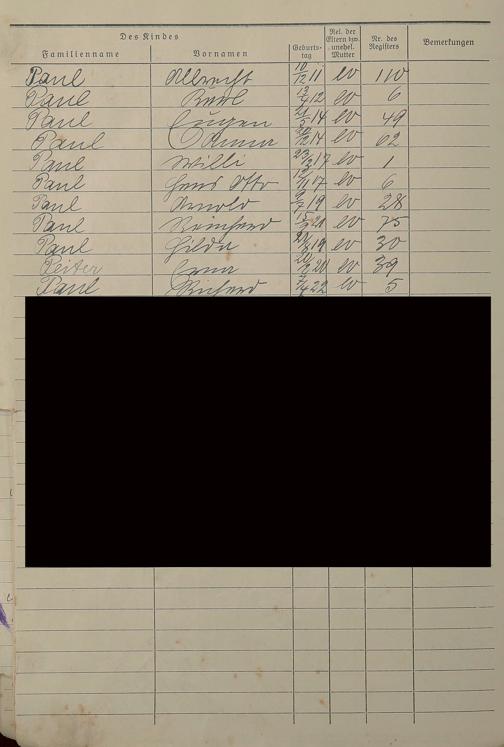 Des Kindes
Familienname Vornamen Geburts-tag Rel. der Eltern bzw. unehel. Mutter Nr. des Registers Bemerkungen
Paul Albrecht 10/12 11 ev 110
Paul Karl 12 ev 6
Paul Eugen 14 ev 49
Paul Anna 14 ev 62
Paul Willi 17 ev 1
Paul Hans Otto 17 ev 6
Paul Arnold 19 ev 28
Paul Reinhard ev 75
Paul Hilda 19 ev 30
Reiter Erna 20 ev 39
Paul Richard 22 ev 5